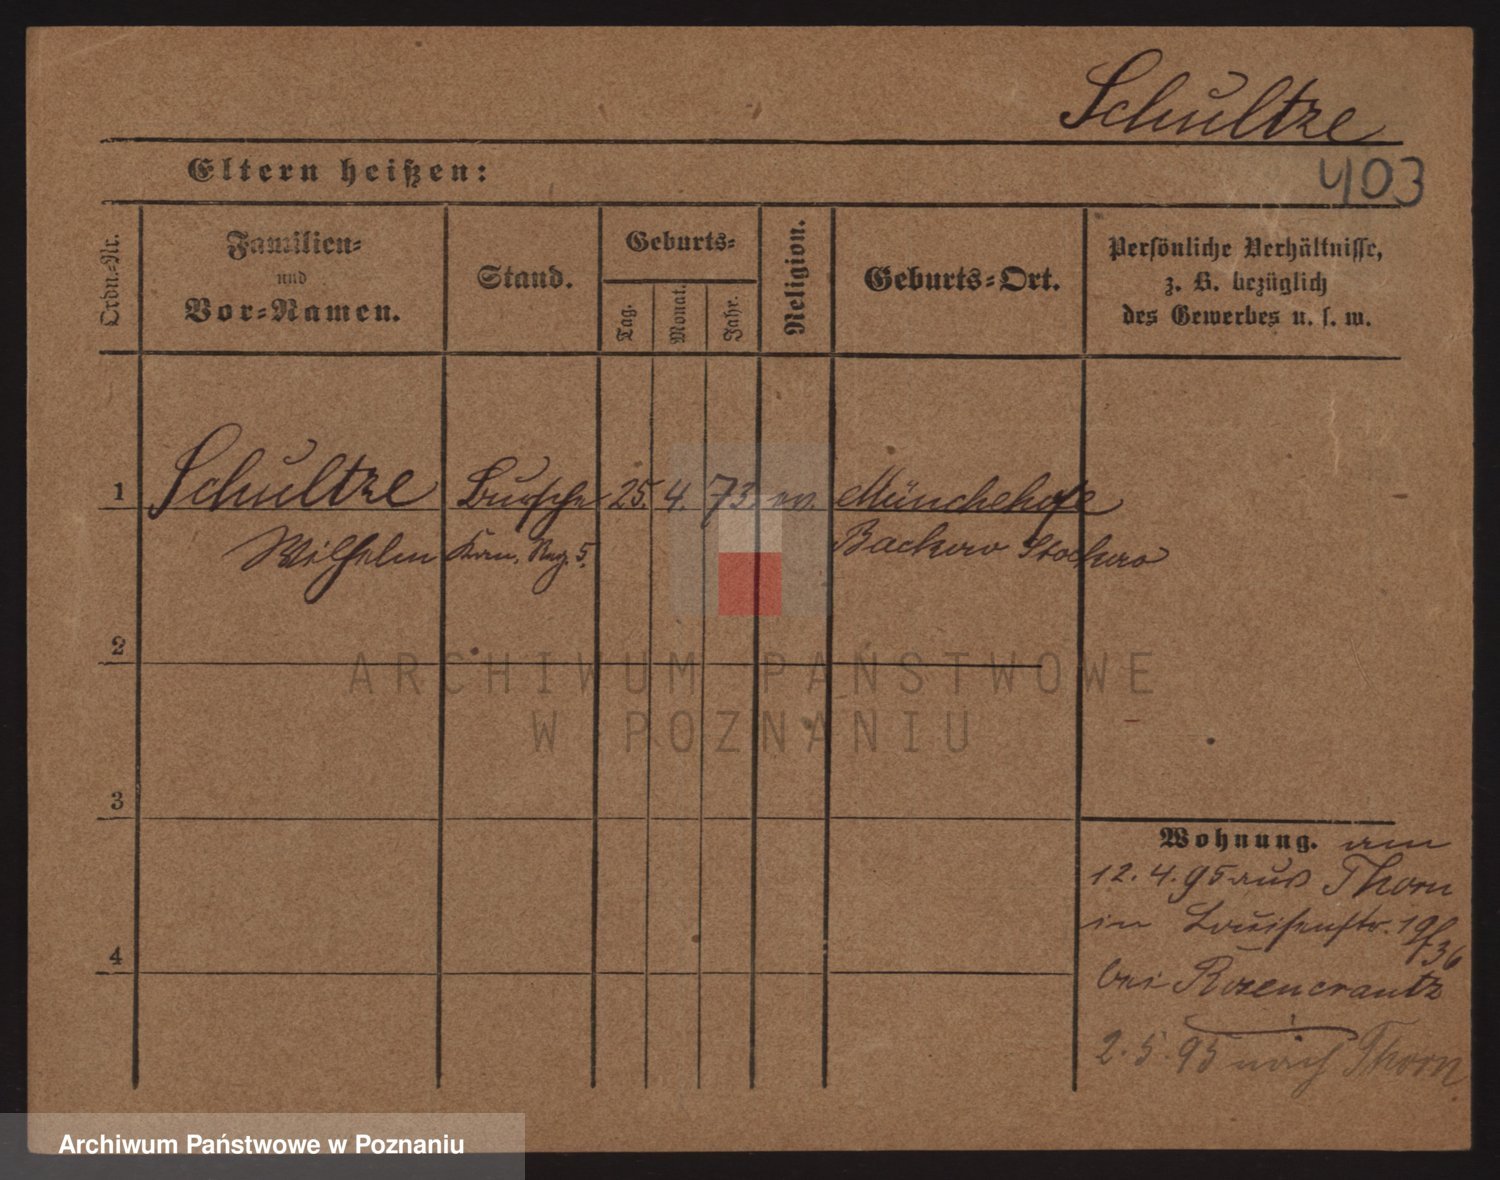 Schultze
Eltern heißen:
403
Ordn.=Nr.
Familien=
und
Vor=Namen.
Stand.
Geburts=
Tag.
Monat.
Jahr.
Religion.
Geburts=Ort.
Persönliche Verhältnisse,
z. B. bezüglich
des Gewerbes u. s. w.
1 Schultze Bursche 25. 4. 73. ev. Münchehofe
Wilhelm 5. Backow Stockow
2
ARCHIWUM PAŃSTWOWE
W POZNANIU
3
Wohnung. am
12. 4. 95 aus Thorn
4
in Louisenstr. 19/36
bei Rosencrantz
2. 5. 95 nach Thorn
Archiwum Państwowe w Poznaniu